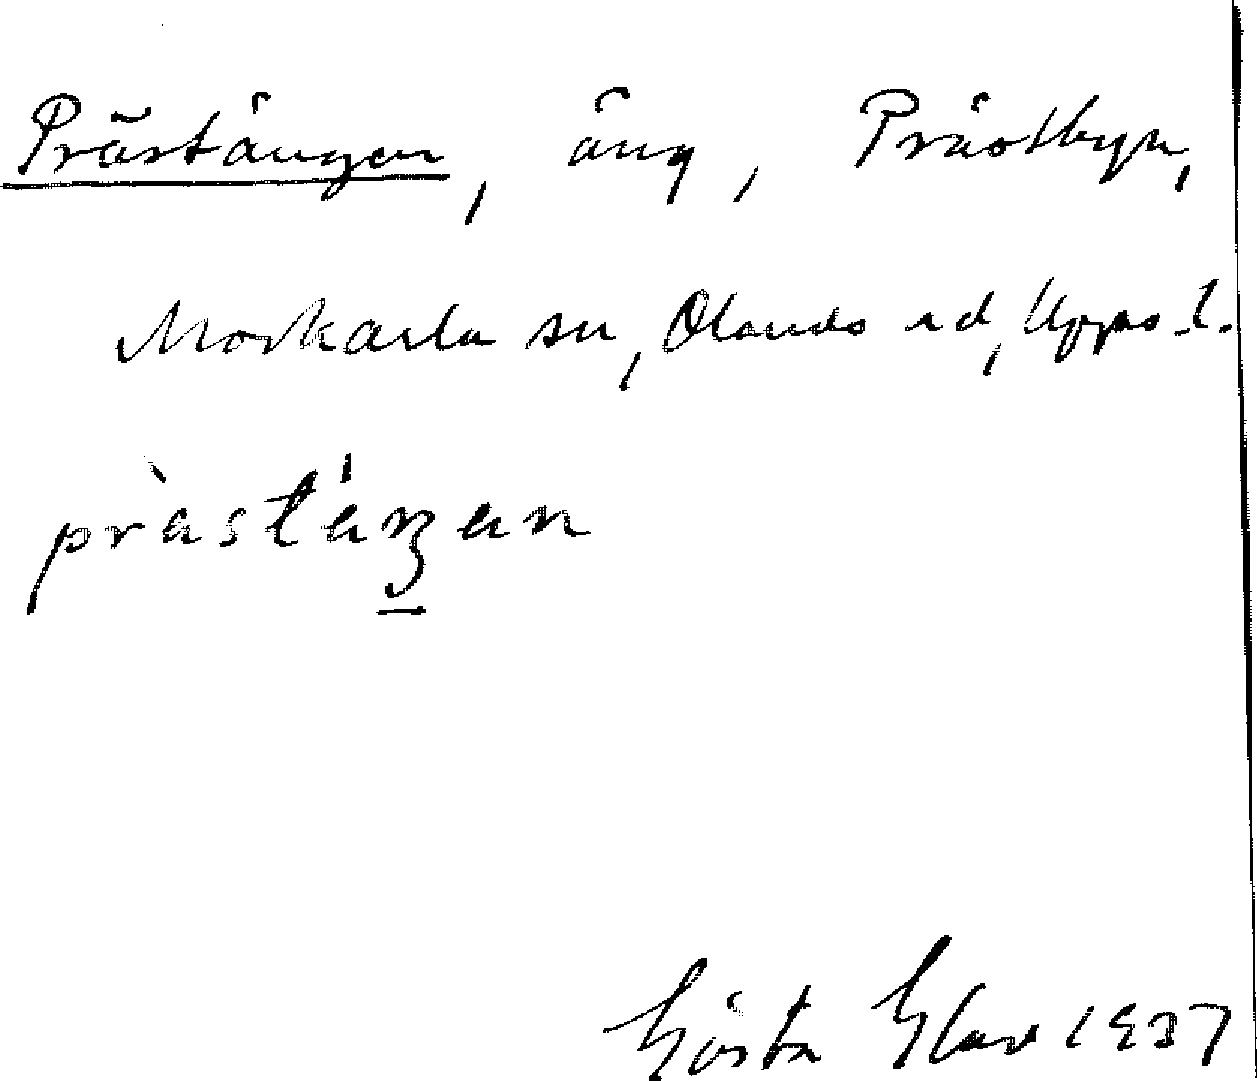 Prästängen, äng, Prästbyn,
Morkarla sn, Olands hd, Upps. l.
Gösta 1937